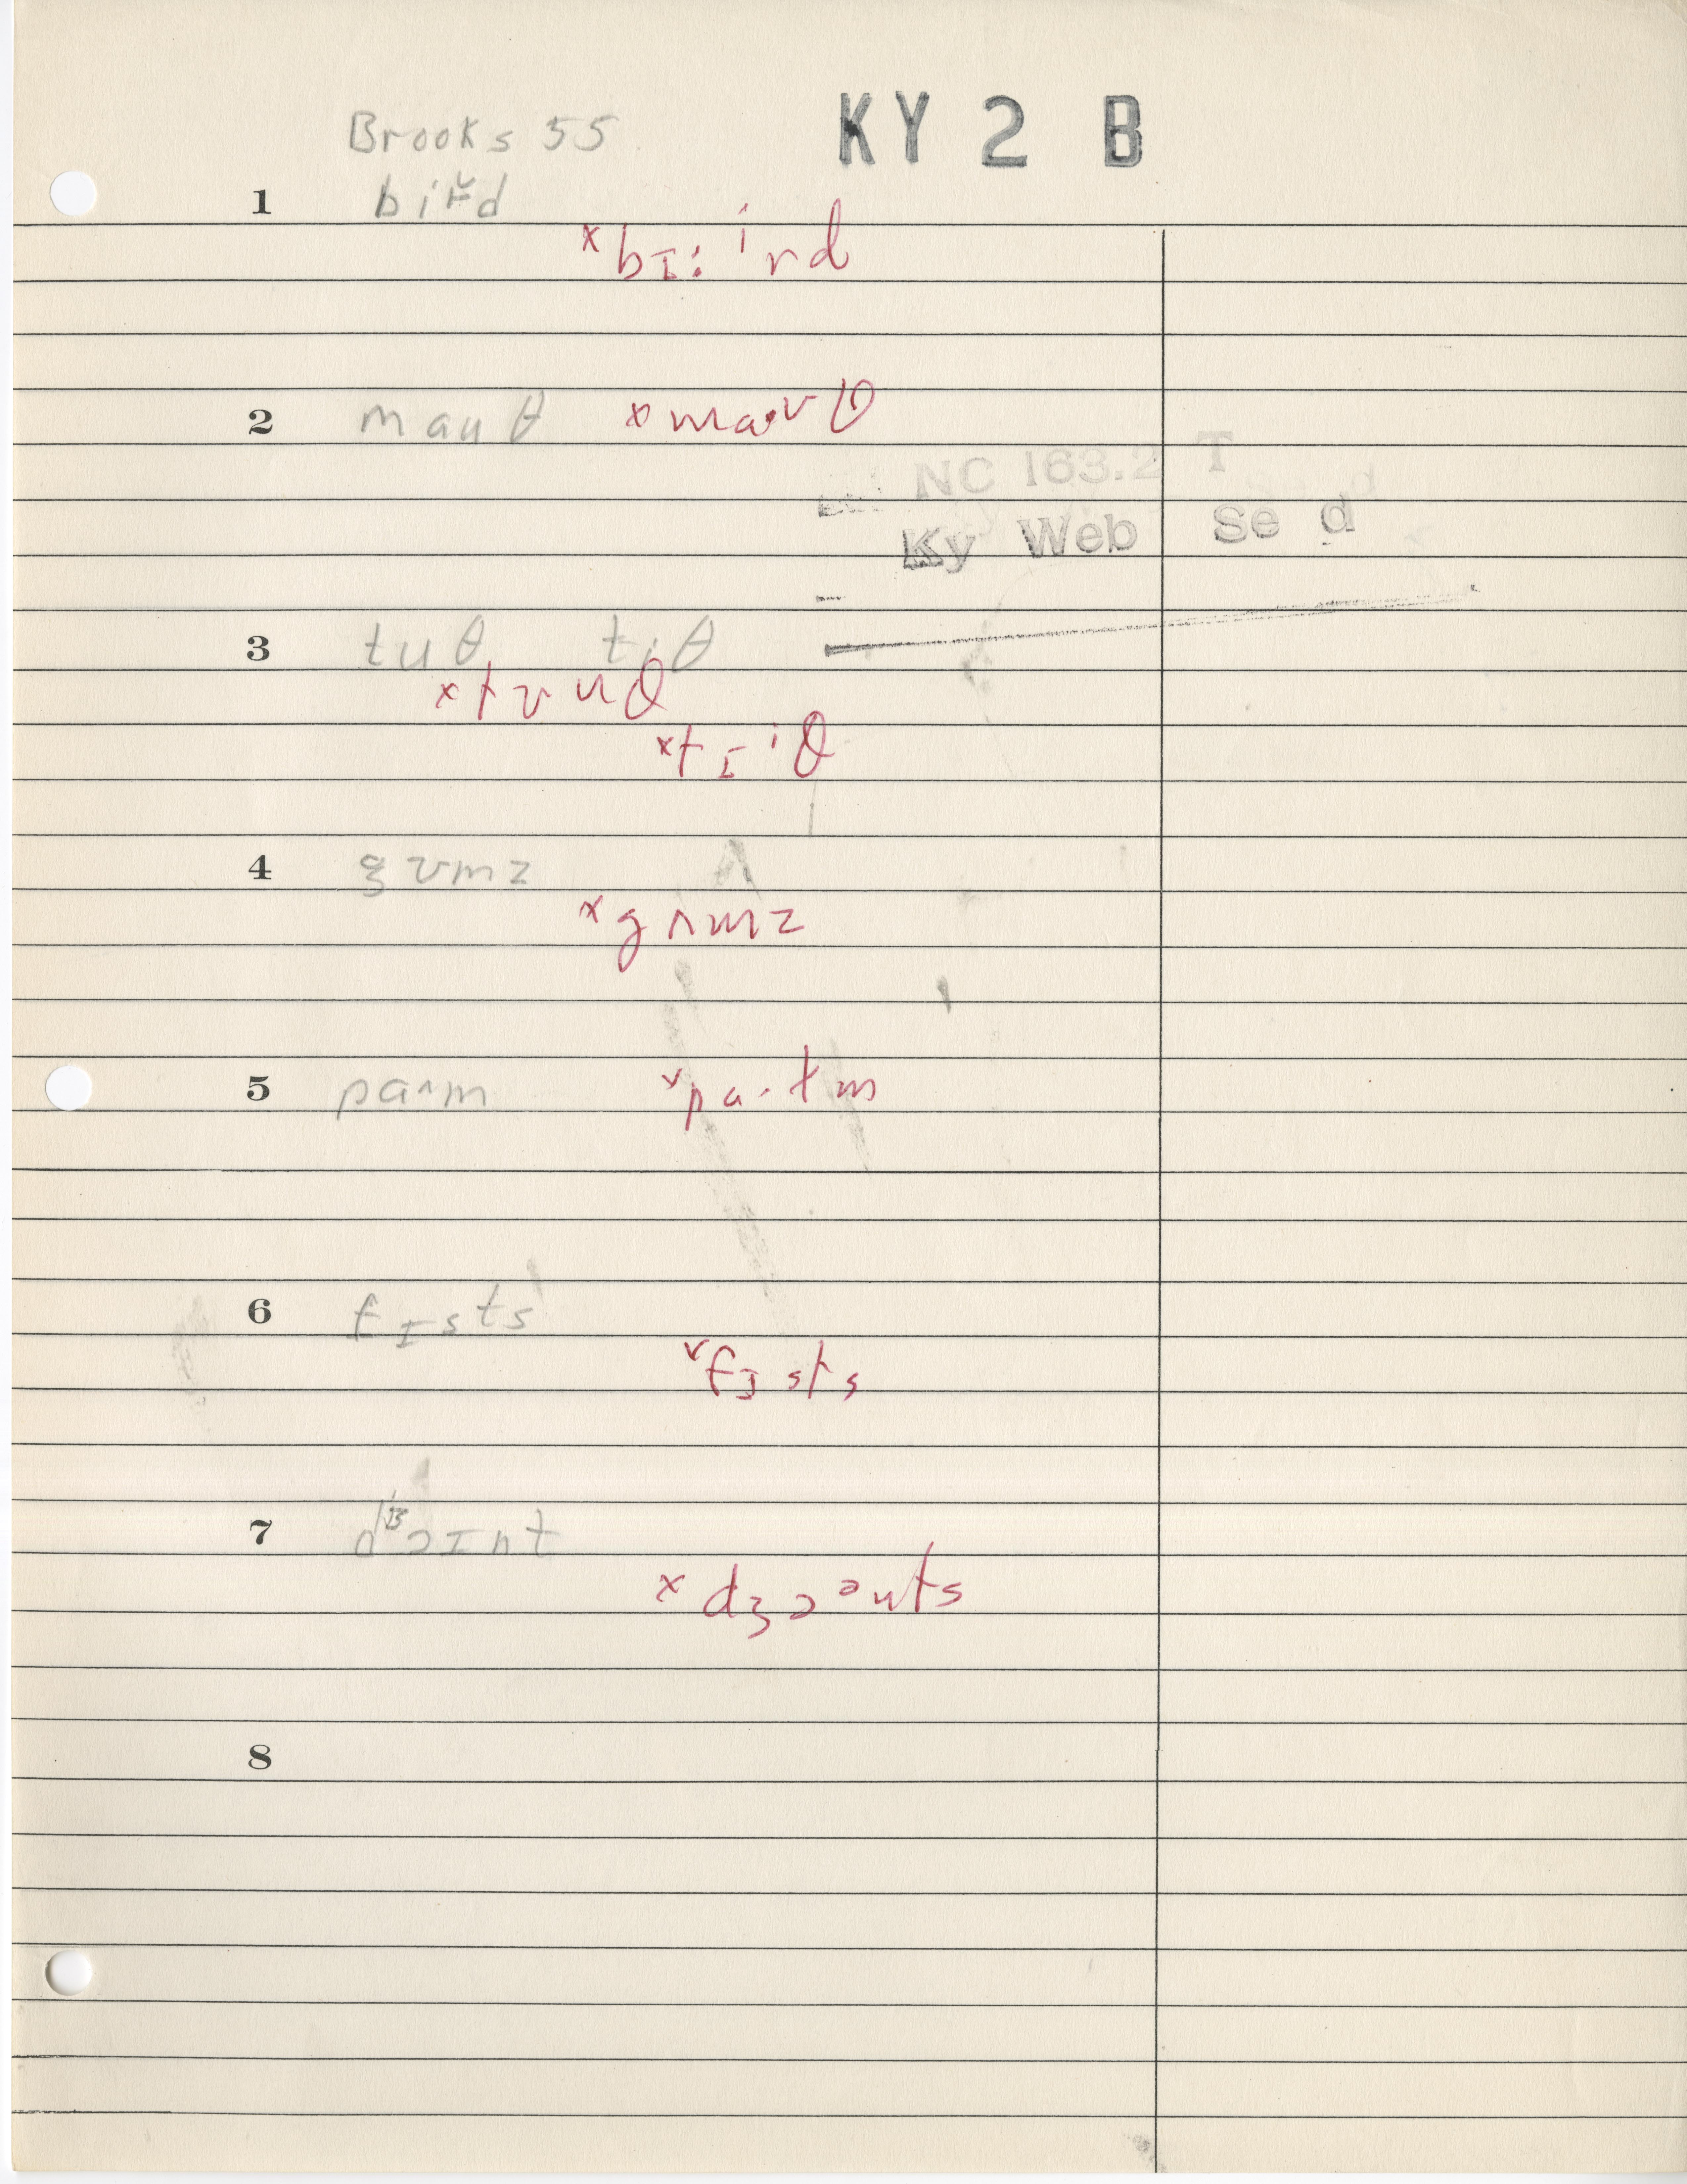 Brooks 55
KY 2 B
1 bir̆d
ˣbɪ: ⁱrd
2 mauθ ˣma·ʊθ
NC 163.2 T
Ky Web Se d
3 tuθ tiθ
ˣtʊuθ
ˣtɪⁱθ
4 gʊmz
ˣgʌmz
5 paʌm ˅pa·ɫm
6 fɪsts
˅fɪsts
7 dᶾɔɪnt
ˣdʒɔᵊnts
8